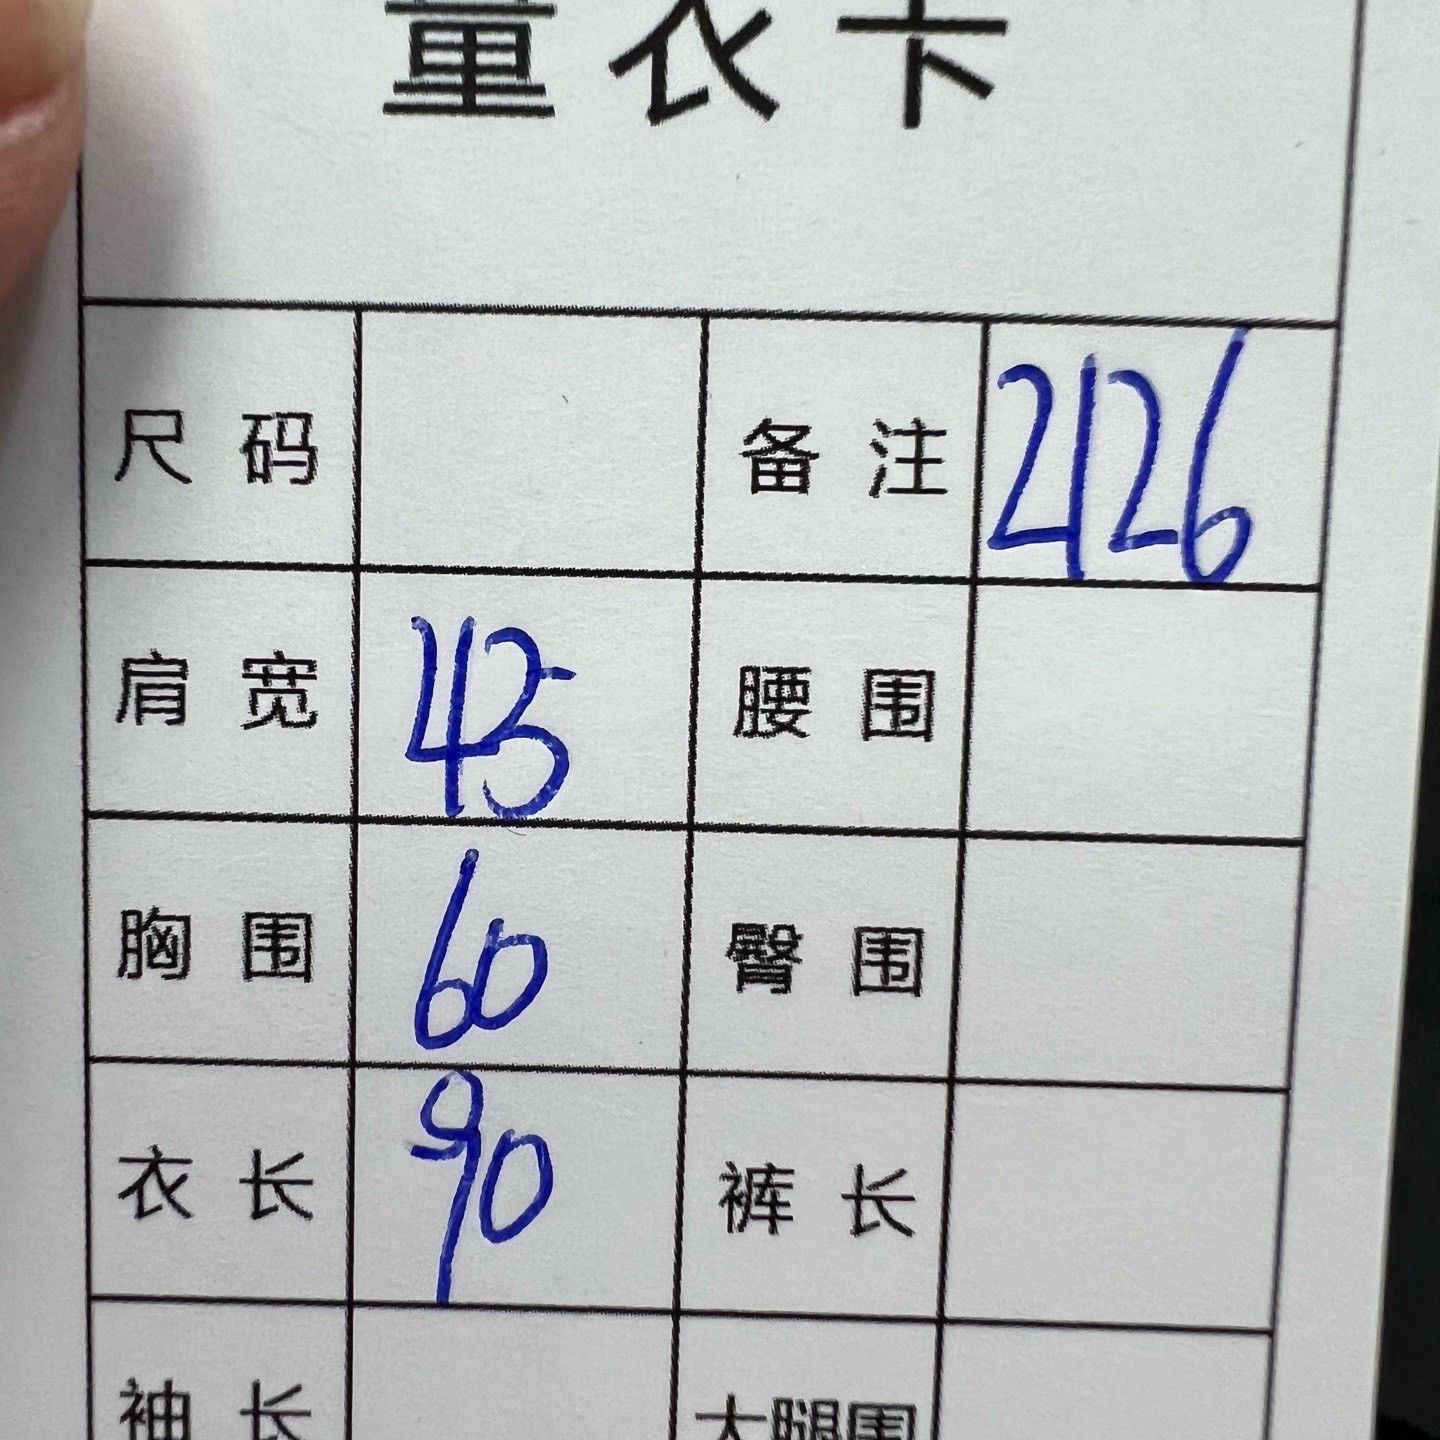 量衣卡
尺码 备注 2126
肩宽 45 腰围
胸围 60 臀围
衣长 90 裤长
袖长 大腿围